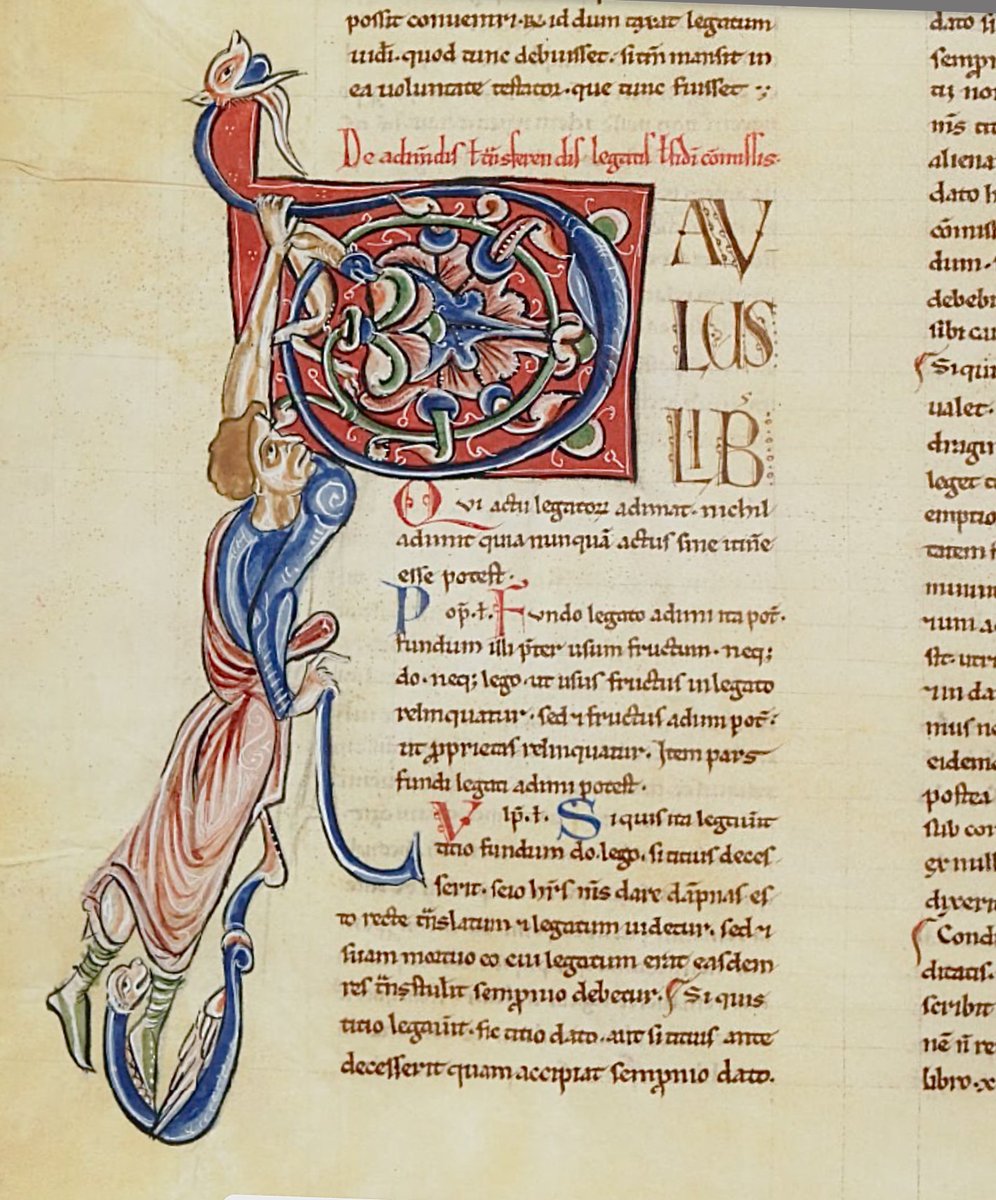 possit conveniri· & id dum taxat legatum
vidi· quod tunc debuisset· si tn̄ mansit in
ea voluntate testator· que tunc fuisset
De adim̄dis ł t̄nsferendis legatis ł fidī cōmissis·
PAV
LUS
LIB̄
Qui actū legatorum adimat· nichil
adimit quia nunquā actus sine itin̄e
esse potest·
Pop̄·ł· Fundo legato adimi ita pot̄·
fundum illi p̄ter usum fructum· neq;
do· neq; lego· ut usus fructus in legato
relinquatur· sed ⁊ fructus adimi pot̄·
ut proprietas relinquatur· Item pars
fundi legati adimi potest·
Vlp̄·ł· Siquis ita legaūit
titio fundum do· lego· si titius deces
serit· seio h̄rs m̄s dare dāpnas es
to recte t̄nslatum ⁊ legatum videtur· sed ⁊
si iam mortuo eo cui legatum erit easdem
res t̄nstulit sempronio debetur· Si quis
titio legaūit· sic titio dato· aut si titius ante
decesserit quam accipiat sempronio dato·
dato si
alien
dato h
dum·
Si qui
valet·
leget
emptio
postea
sub con
ex null
Cond
ditatis·
scribit
libro·x